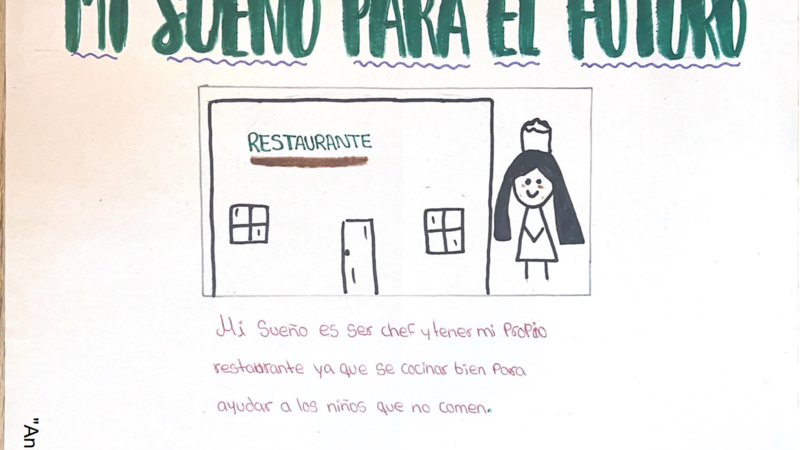 MI SUEÑO PARA EL FUTURO
RESTAURANTE
Mi Sueño es ser chef y tener mi propio
restaurante ya que se cocinar bien para
ayudar a los niños que no comen.
"An